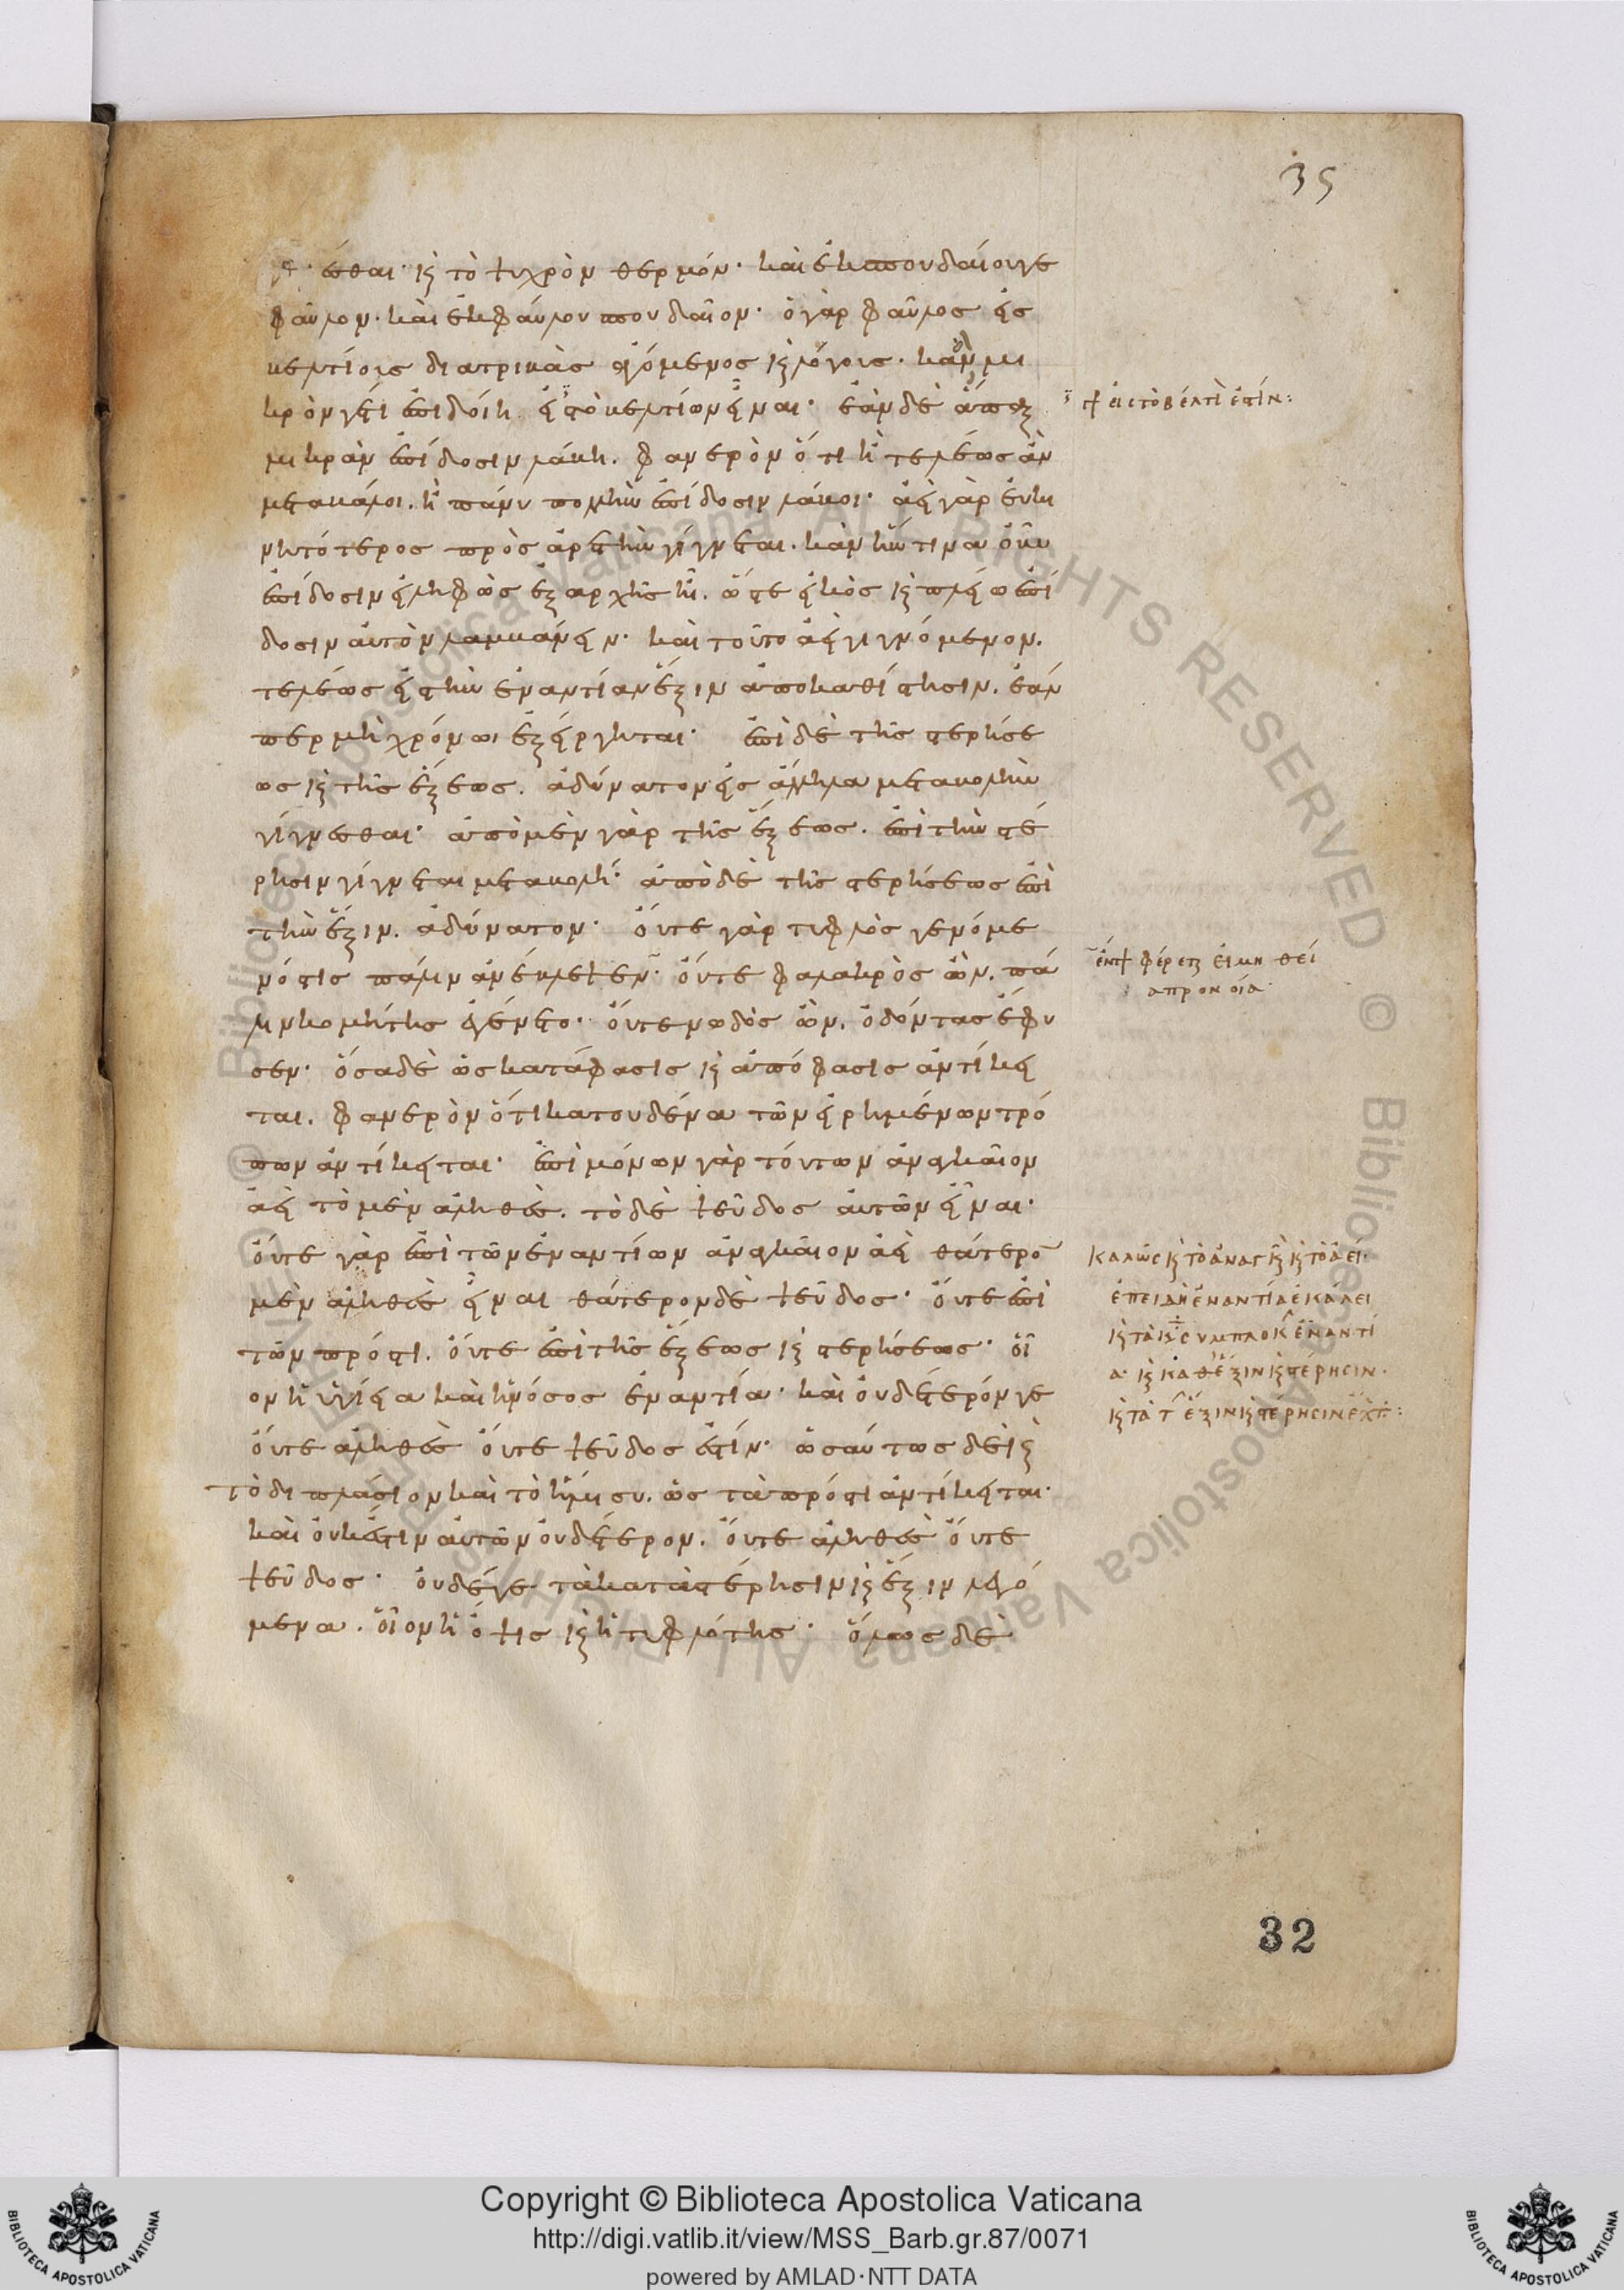 35
γενέσθαι· καὶ τὸ ψυχρὸν θερμόν· καὶ ἐκ σπουδαίου γε
φαῦλον· καὶ ἐκ φαύλου σπουδαῖον· ὁ γὰρ φαῦλος εἰς
βελτίους διατριβὰς ἀγόμενος καὶ λόγους. κἂν μι
κρόν γέ τι ἐπιδοίη εἰς τὸ βελτίων εἶναι· ἐὰν δὲ ἅπαξ
μικρὰν ἐπίδοσιν λάβη. φανερὸν ὅτι ἢ τελέως ἂν
μεταβάλοι. ἢ πάνυ πολλὴν ἐπίδοσιν λάβοι· ἀεὶ γὰρ εὐκι
νητότερος πρὸς ἀρετὴν γίγνεται. κἂν ἡντιναοῦν
ἐπίδοσιν εἰληφὼς ἐξ αρχῆς ἦ. ὥστε εἰκὸς καὶ πλείω ἐπί
δοσιν αὐτὸν λαμβάνειν· καὶ τοῦτο ἀεὶ γιγνόμενον.
τελέως εἰς τὴν ἐναντίαν ἕξιν ἀποκαθίστησιν. ἐάν
περ μὴ χρόνωι ἐξείργηται· ἐπὶ δὲ τῆς στερήσε
ως καὶ τῆς ἕξεως. ἀδύνατον εἰς ἄλληλα μεταβολὴν
γίγνεσθαι· ἀπὸ μὲν γὰρ τῆς ἕξεως. ἐπὶ τὴν στέ
ρησιν γίγνεται μεταβολή· ἀπὸ δὲ τῆς στερήσεως ἐπὶ
τὴν ἕξιν. ἀδύνατον· οὔτε γὰρ τυφλὸς γενόμε
νός τις πάλιν ἀνέβλεψεν· οὔτε φαλακρὸς ὢν. πά
λιν κομήτης ἐγένετο· οὔτε νωδὸς ὢν. ὀδόντας ἔφυ
σεν· ὅσα δὲ ὡς κατάφασις καὶ ἀπόφασις ἀντίκει
ται. φανερὸν ὅτι κατ ουδένα τῶν εἰρημένων τρό
πων ἀντίκειται· ἐπὶ μόνων γὰρ τούτων ἀναγκαῖον
ἀεὶ τὸ μὲν αληθὲς. τὸ δὲ ψεῦδος αὐτῶν εἶναι·
οὔτε γὰρ ἐπὶ τῶν ἐναντίων ἀναγκαῖον ἀεὶ θάτερο̄
μὲν αληθὲς εἶναι θάτερον δὲ ψεῦδος· οὔτε ἐπὶ
τῶν πρός τι. οὔτε ἐπὶ τῆς ἕξεως καὶ στερήσεως· οἷ
ον ἡ ὑγίεια καὶ ἡ νόσος ἐναντία· καὶ οὐδέτερόν γε
οὔτε αληθὲς οὔτε ψεῦδος ἐστίν· ὡσαύτως δὲ καὶ
τὸ διπλάσιον καὶ τὸ ἥμισυ. ὡς τὰ πρός τι ἀντίκειται·
καὶ οὐκ ἔστιν αὐτῶν οὐδέτερον. οὔτε αληθὲς οὔτε
ψεῦδος· οὐδέ γε τὰ κατὰ στέρησιν καὶ ἕξιν λεγό
μενα. οἷον ἡ ὄψις καὶ ἡ τυφλότης· ὅλως δὲ
εἰς τὸ βέλτι
φέρεται εἰ μὴ θεί
α προνοία
καλῶς καὶ τὸ ἀναγκ καὶ τὸ ἀεί·
ἐπειδὴ ἐναντία ἐκάλει
συμπλοκ ἐναντί
α· καὶ καθ ἕξιν καὶ στέρησιν·
καὶ τὰ ἕξιν καὶ στέρησιν
32
Copyright © Biblioteca Apostolica Vaticana
http://digi.vatlib.it/view/MSS_Barb.gr.87/0071
powered by AMLAD·NTT DATA
BIBLIOTECA APOSTOLICA VATICANA
BIBLIOTECA APOSTOLICA VATICANA